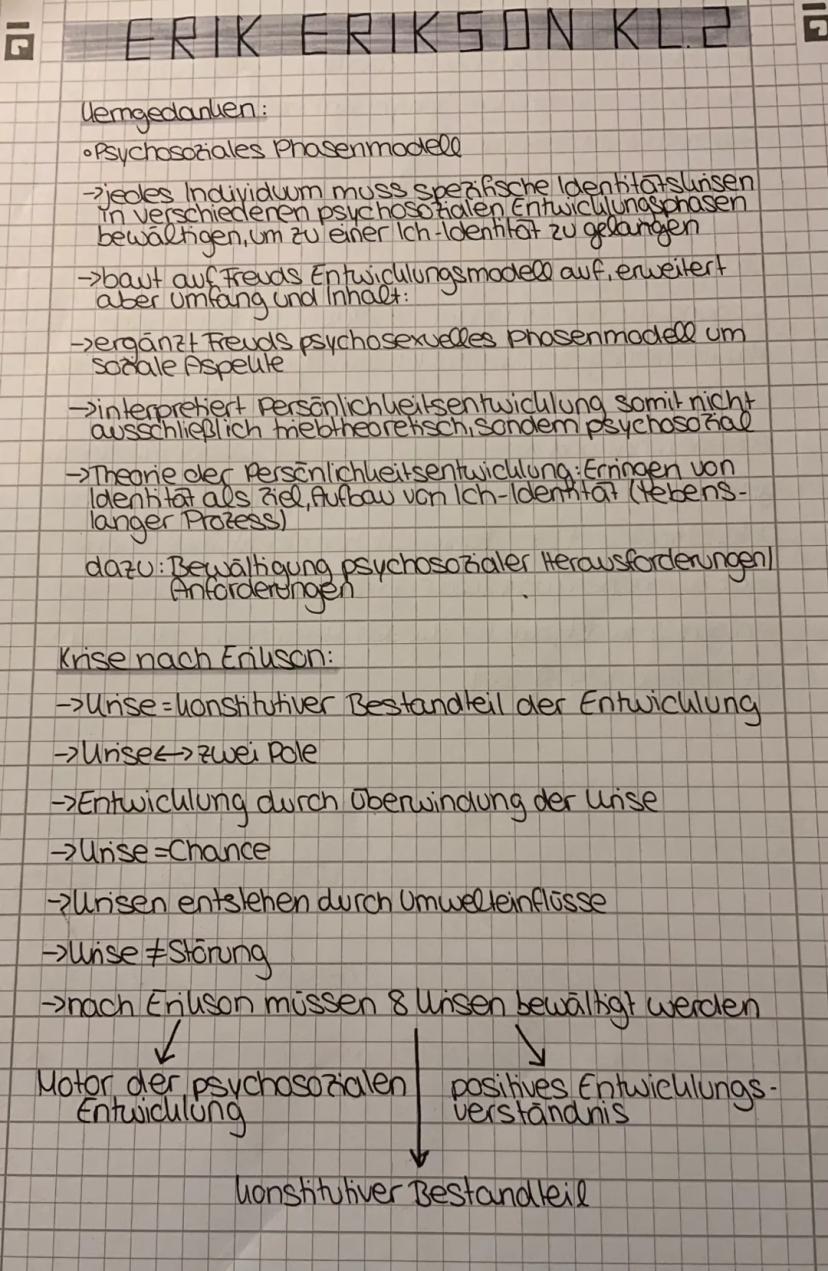 ERIK ERIKSON KL.2
Kerngedanken:
•Psychosoziales Phasenmodell
→jedes Individuum muss spezifische Identitätskrisen
in verschiedenen psychosozialen Entwicklungsphasen
bewältigen, um zu einer Ich-Identität zu gelangen
→baut auf Freuds Entwicklungsmodell auf, erweitert
aber Umfang und Inhalt:
→ergänzt Freuds psychosexuelles Phasenmodell um
soziale Aspekte
→interpretiert Persönlichkeitsentwicklung somit nicht
ausschließlich triebtheoretisch, sondern psychosozial
→Theorie der Persönlichkeitsentwicklung: Erringen von
Identität als Ziel, Aufbau von Ich-Identität (lebens-
langer Prozess)
dazu: Bewältigung psychosozialer Herausforderungen/
Anforderungen
Krise nach Erikson:
→Krise = konstitutiver Bestandteil der Entwicklung
→Krise ↔ zwei Pole
→Entwicklung durch Überwindung der Krise
→Krise = Chance
→Krisen entstehen durch Umwelteinflüsse
→Krise ≠ Störung
→nach Erikson müssen 8 Krisen bewältigt werden
Motor der psychosozialen
Entwicklung
positives Entwicklungs-
verständnis
konstitutiver Bestandteil